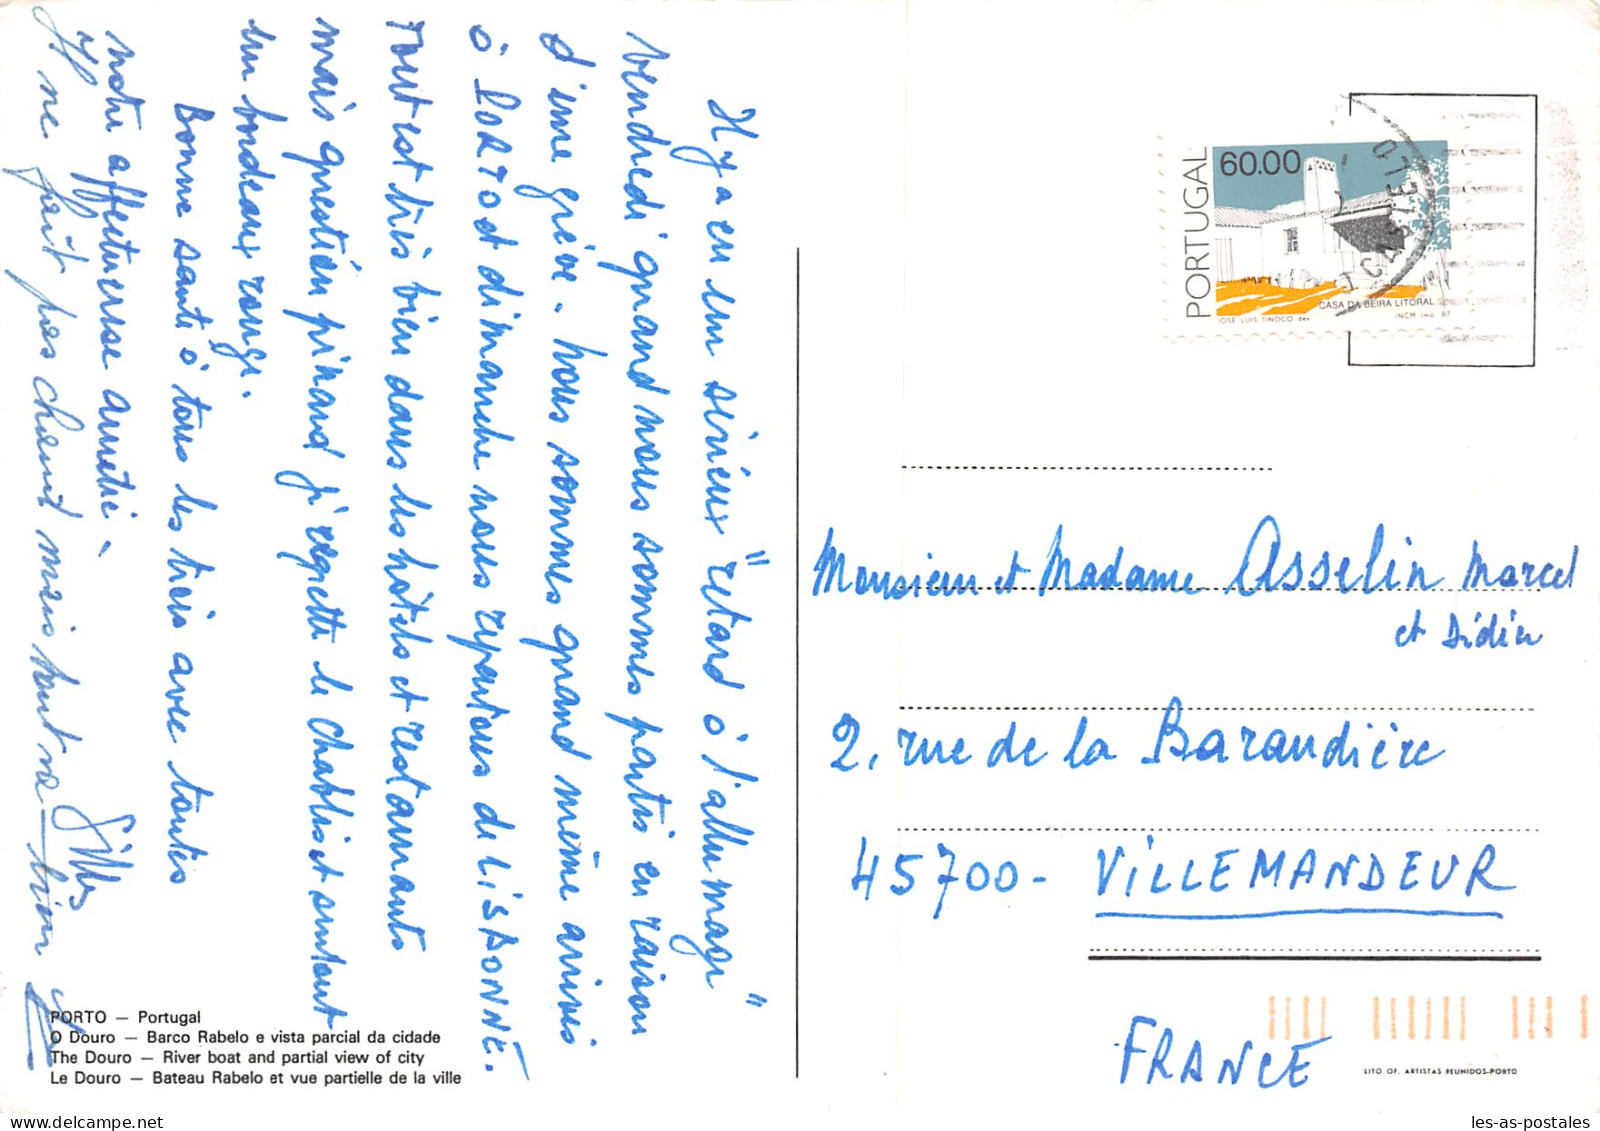 Il y a eu un sérieux "retard à l'allumage"
vendredi quand nous sommes partis en raison
d'une grève. Nous sommes quand même arrivés
à PORTO et dimanche nous repartons de LISBONNE.
Tout est très bien dans les hôtels et restaurants
mais question pinard j'regrette le chablis et surtout
un bordeaux rouge.
Bonne santé à tous les trois avec toutes
notre affectueuse amitié.
Gilles
Il ne fait pas chaud mais tout va bien
PORTO — Portugal
O Douro — Barco Rabelo e vista parcial da cidade
The Douro — River boat and partial view of city
Le Douro — Bateau Rabelo et vue partielle de la ville
PORTUGAL
60.00
CASA DA BEIRA LITORAL
JOSÉ LUIS TINOCO des
INCM imp 87
CASTELO
Monsieur et Madame Asselin Marcel
et Didier
2, rue de la Barandière
45700 - VILLEMANDEUR
FRANCE
LITO OF. ARTISTAS REUNIDOS-PORTO
les-as-postales